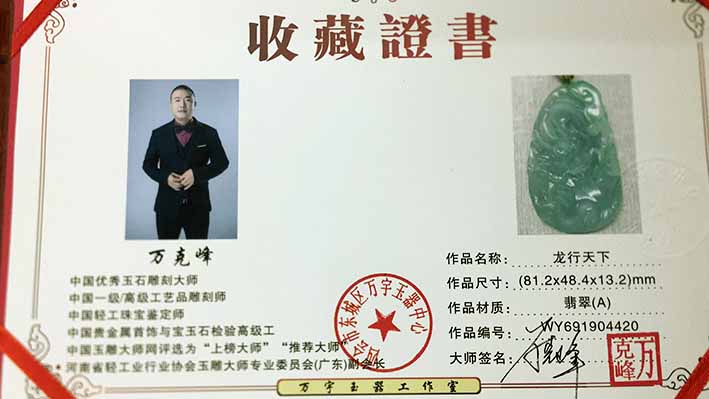 收藏證書
万克峰
中国优秀玉石雕刻大师
中国一级/高级工艺品雕刻师
中国轻工珠宝鉴定师
中国贵金属首饰与宝玉石检验高级工
中国玉雕大师网评选为“上榜大师”“推荐大师”
河南省轻工业行业协会玉雕大师专业委员会(广东)副会长
会市东城区万宇玉器中心
作品名称： 龙行天下
作品尺寸： (81.2x48.4x13.2)mm
作品材质： 翡翠(A)
作品编号： WY691904420
大师签名： 万克峰
万克峰
万宇玉器工作室